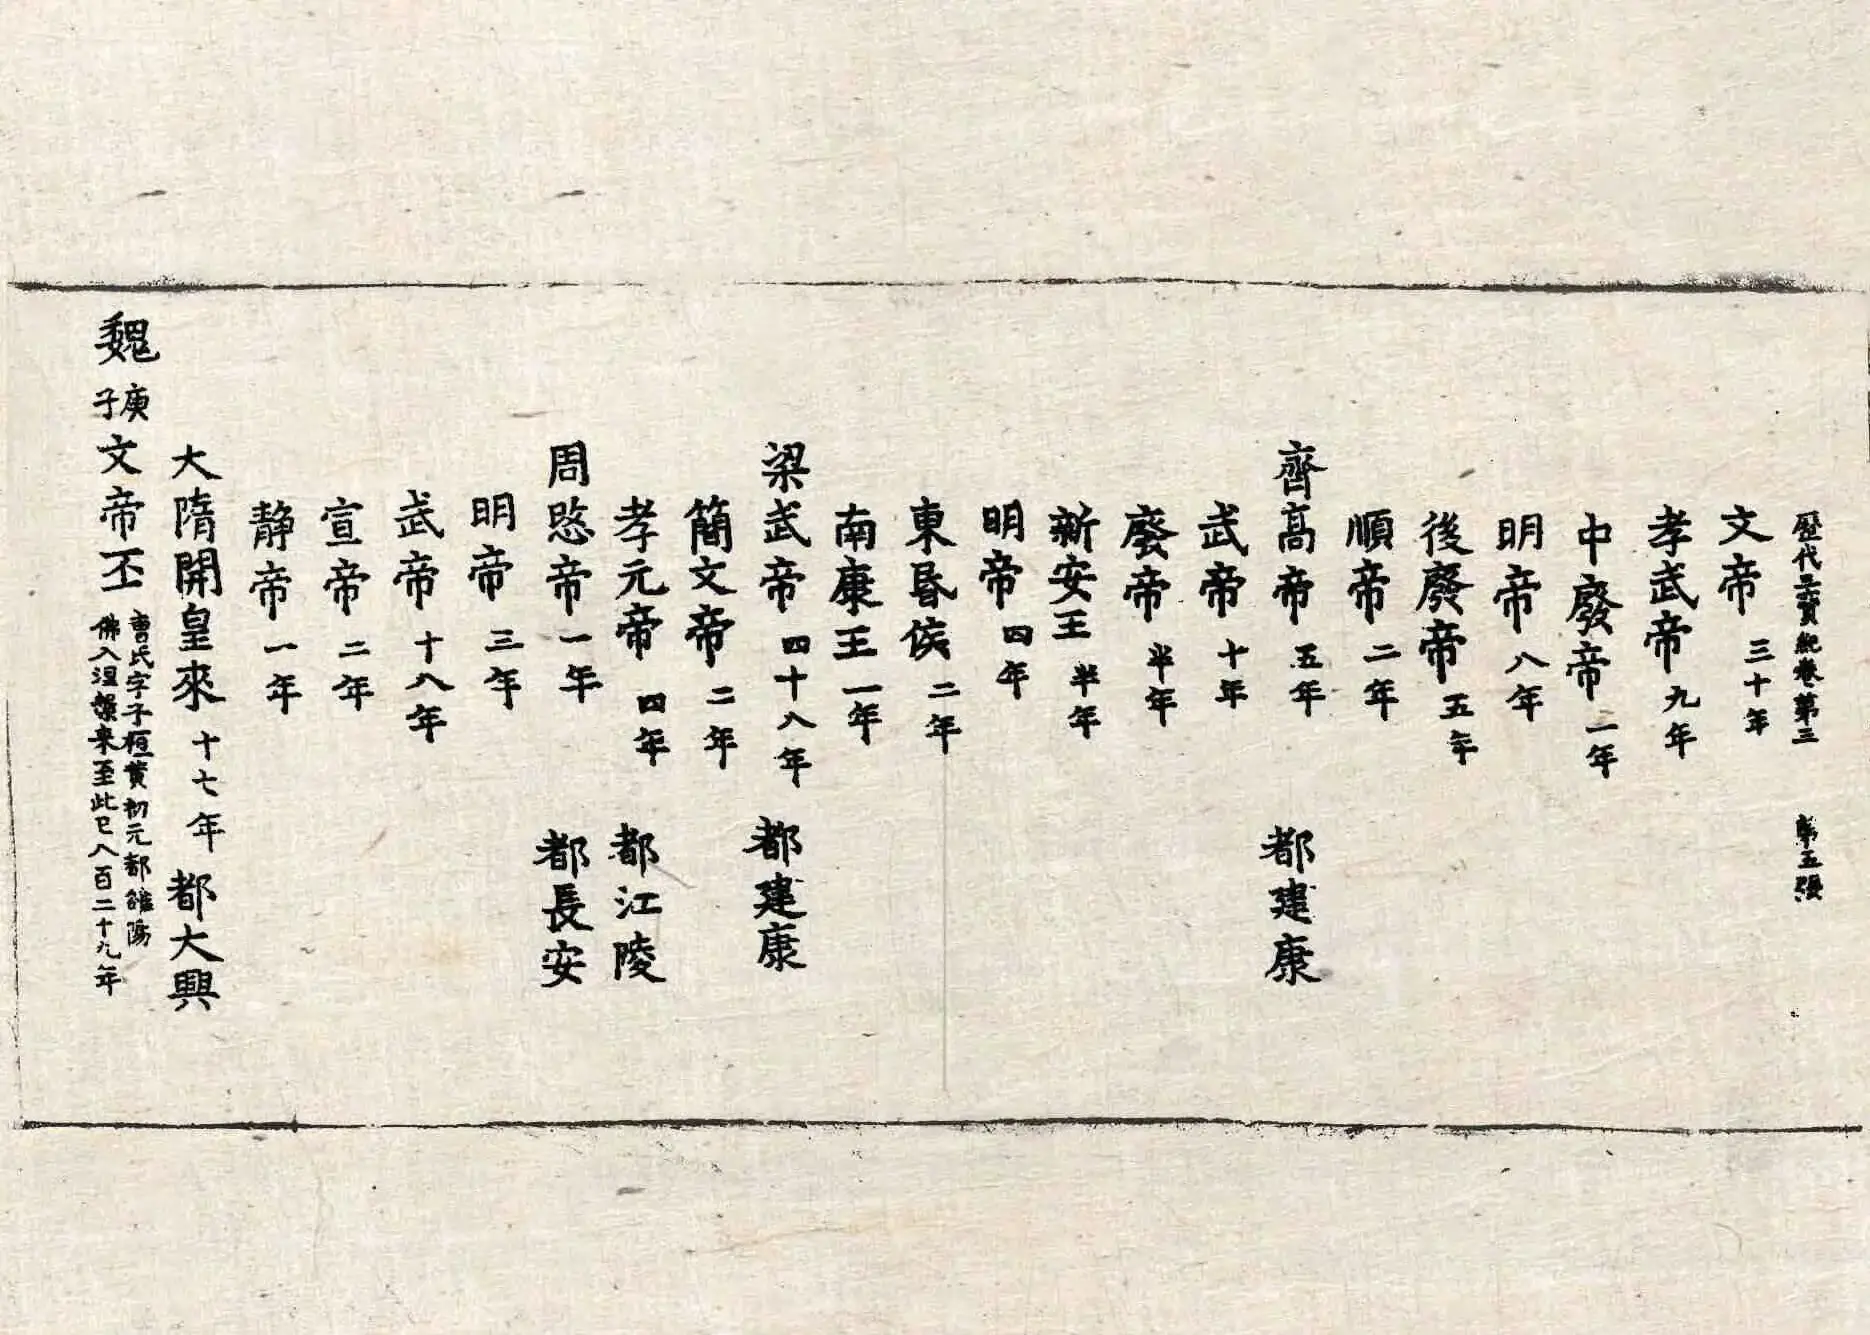 歷代三寶紀卷第三 第五張
文帝三十年
孝武帝九年
中廢帝一年
明帝八年
後廢帝五年
順帝二年
齊高帝五年 都建康
武帝十年
廢帝半年
新安王半年
明帝四年
東昏侯二年
南康王一年
梁武帝四十八年 都建康
簡文帝二年
孝元帝四年 都江陵
周愍帝一年 都長安
明帝三年
武帝十八年
宣帝二年
静帝一年
大隋開皇來十七年 都大興
魏庚子文帝丕
曹氏字子桓黄初元都雒陽
佛入涅槃来至此已八百二十九年